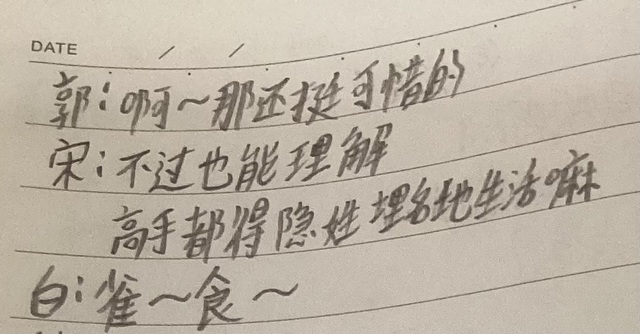 DATE / /
郭：啊～那还挺可惜的
宋：不过也能理解
高手都得隐姓埋名地生活嘛
白：雀～食～